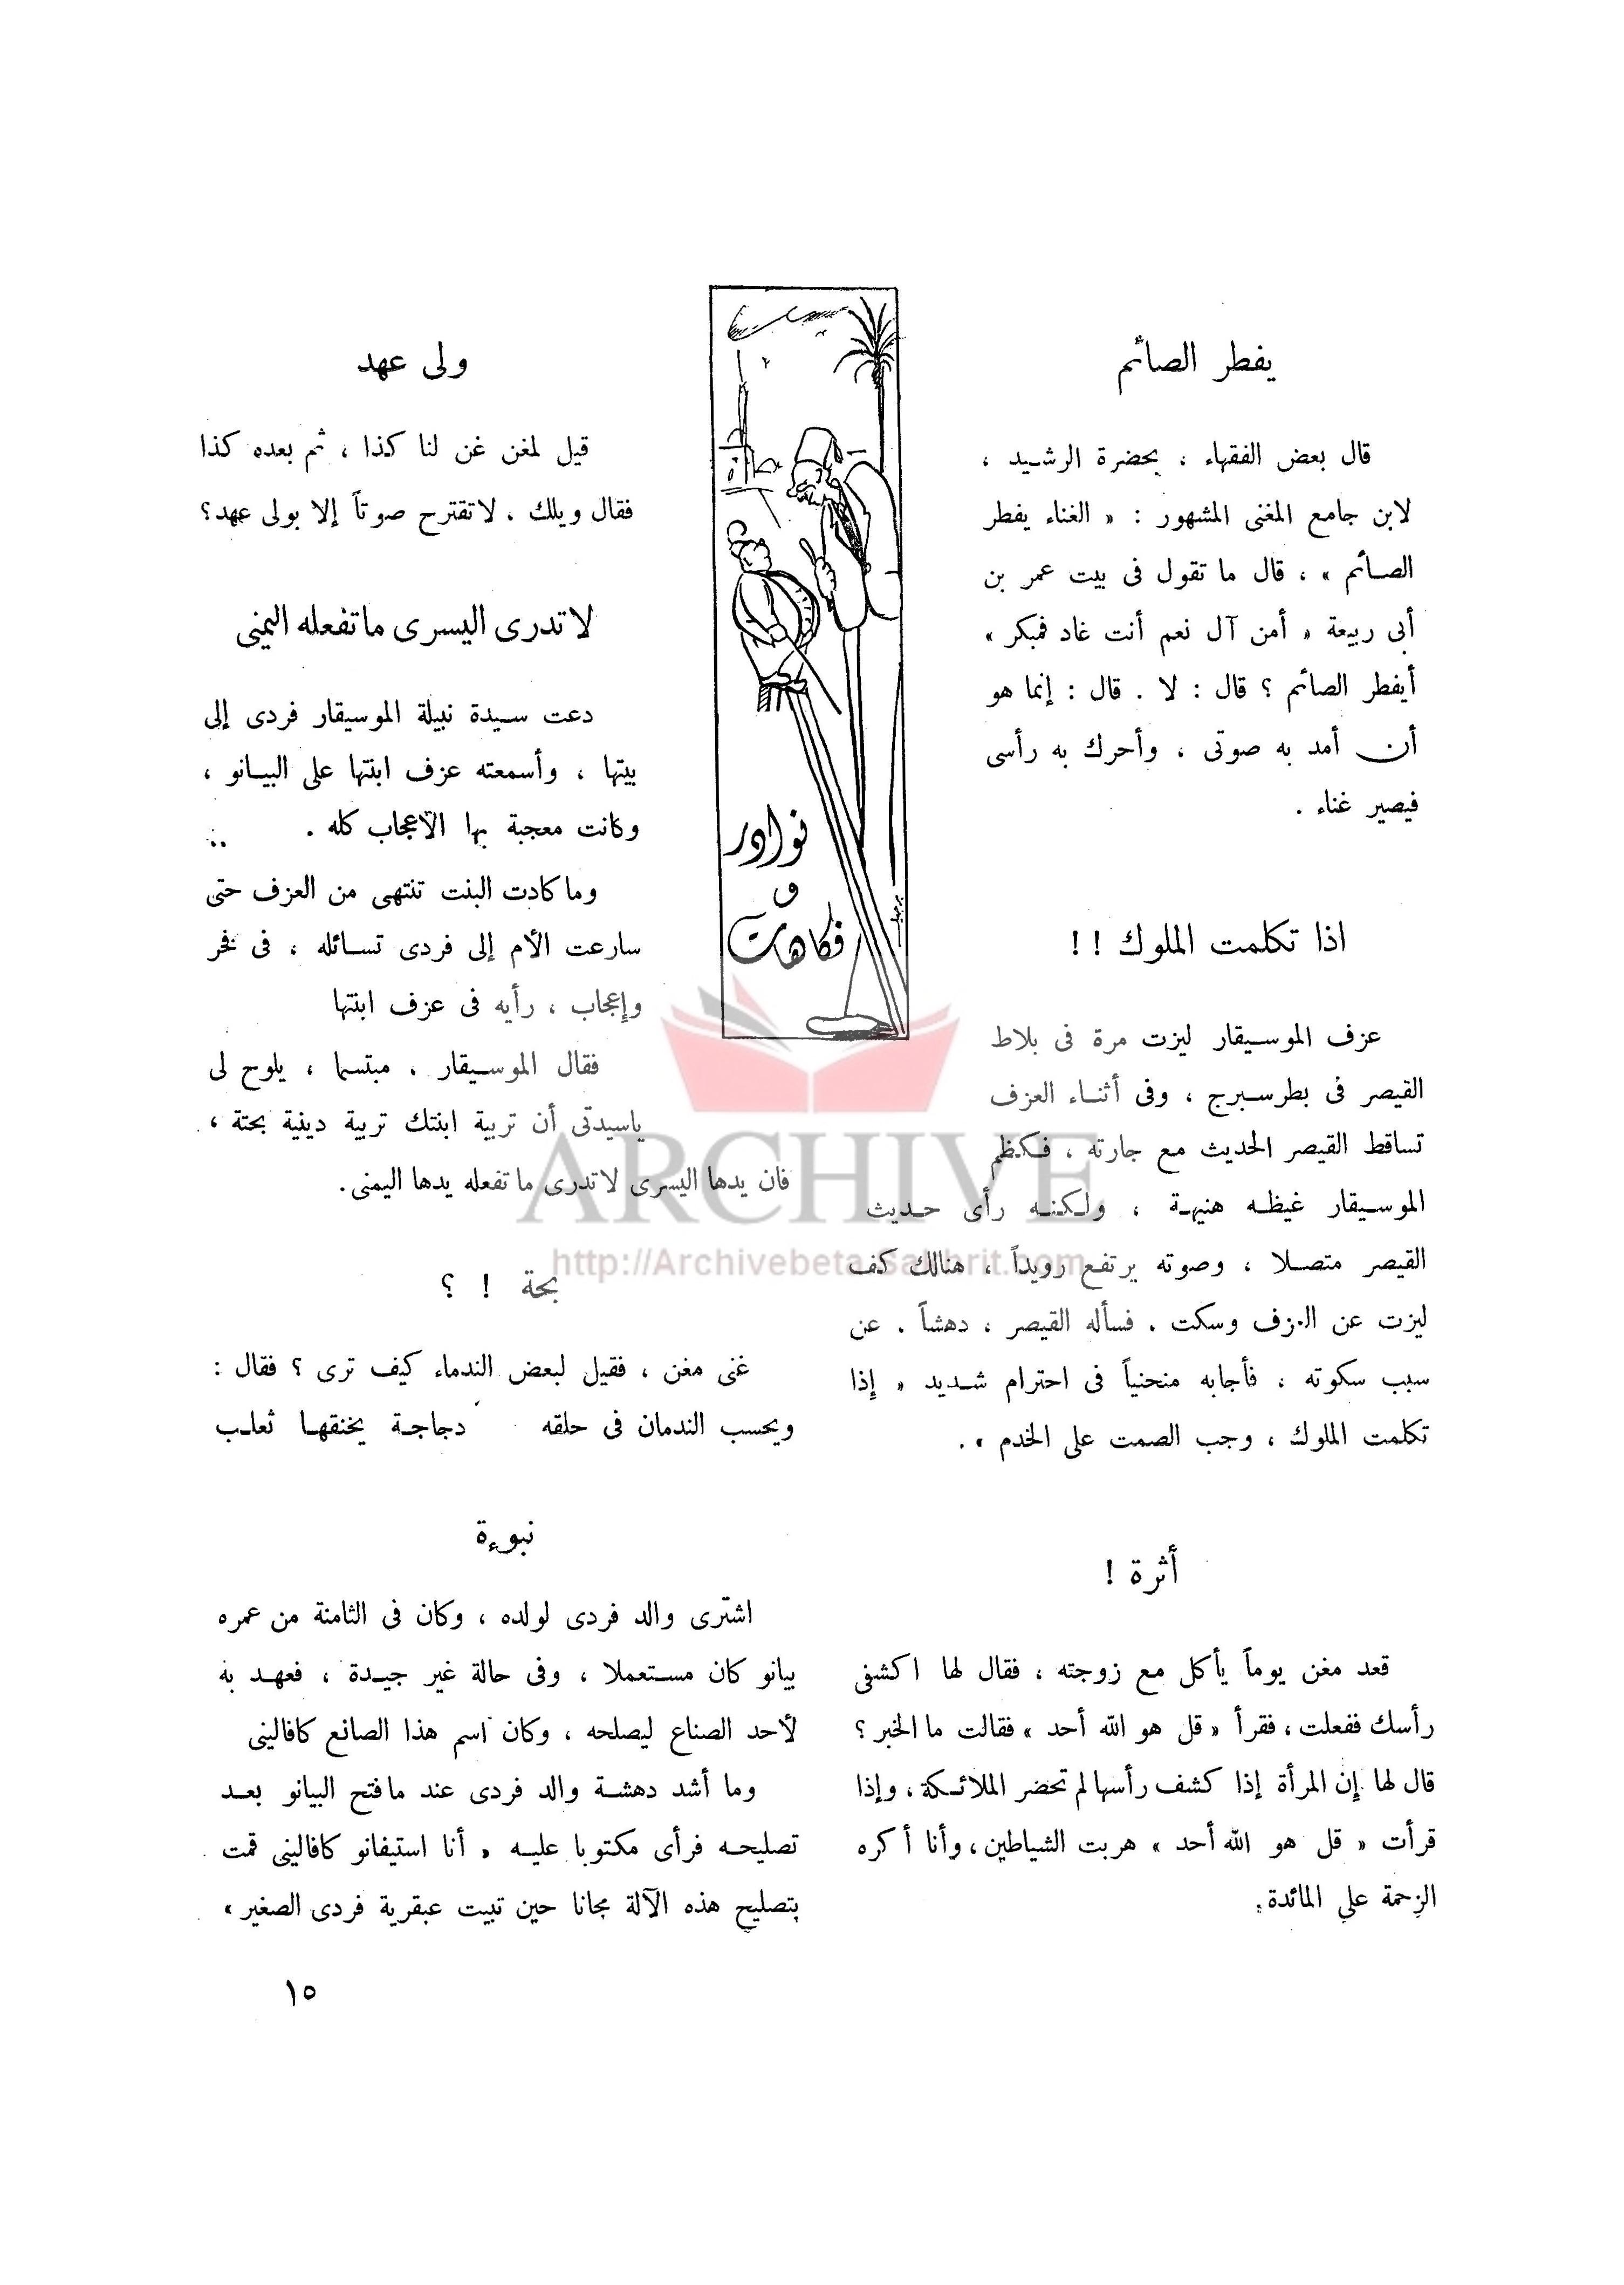 نوادر
و
فكاهات
يفطر الصائم
قال بعض الفقهاء ، بحضرة الرشيد ،
لابن جامع المغنى المشهور : « الغناء يفطر
الصائم » ، قال ما تقول فى بيت عمر بن
أبى ربيعة « أمن آل نعم أنت غاد فمبكر »
أيفطر الصائم ؟ قال : لا . قال : إنما هو
أن أمد به صوتى ، وأحرك به رأسى
فيصير غناء .
اذا تكلمت الملوك ! !
عزف الموسيقار ليزت مرة فى بلاط
القيصر فى بطرسبرج ، وفى أثناء العزف
تساقط القيصر الحديث مع جارته ، فكظم
الموسيقار غيظه هنيهة ، ولكنه رأى حديث
القيصر متصلا ، وصوته يرتفع رويداً ، هنالك كف
ليزت عن العزف وسكت . فسأله القيصر ، دهشاً . عن
سبب سكوته ، فأجابه منحنياً فى احترام شديد « إذا
تكلمت الملوك ، وجب الصمت على الخدم » .
أثرة !
قعد مغن يوماً يأكل مع زوجته ، فقال لها اكشفى
رأسك ففعلت ، فقرأ « قل هو الله أحد » فقالت ما الخبر ؟
قال لها إن المرأة إذا كشف رأسها لم تحضر الملائكة ، وإذا
قرأت « قل هو الله أحد » هربت الشياطين ، وأنا أكره
الزحمة على المائدة .
ولى عهد
قيل لمغن غن لنا كذا ، ثم بعده كذا
فقال ويلك . لا تقترح صوتاً إلا بولى عهد؟
لا تدرى اليسرى ما تفعله اليمنى
دعت سيدة نبيلة الموسيقار فردى إلى
بيتها ، وأسمعته عزف ابنتها على البيانو ،
وكانت معجبة بها الاعجاب كله .
وما كادت البنت تنتهى من العزف حتى
سارعت الأم إلى فردى تسائله ، فى فخر
وإعجاب ، رأيه فى عزف ابنتها
فقال الموسيقار ، مبتسما ، يلوح لى
ياسيدتى أن تربية ابنتك تربية دينية بحتة ،
فان يدها اليسرى لا تدرى ما تفعله يدها اليمنى .
بحة ! ؟
غنى مغن ، فقيل لبعض الندماء كيف ترى ؟ فقال :
ويحسب الندمان فى حلقه دجاجة يخنقها ثعلب
نبوءة
اشترى والد فردى لولده ، وكان فى الثامنة من عمره
بيانو كان مستعملا ، وفى حالة غير جيدة ، فعهد به
لأحد الصناع ليصلحه ، وكان اسم هذا الصانع كافالينى
وما أشد دهشة والد فردى عند ما فتح البيانو بعد
تصليحه فرأى مكتوبا عليه « أنا استيفانو كافالينى قمت
بتصليح هذه الآلة مجانا حين تبيت عبقرية فردى الصغير »
١٥
ARCHIVE
http://Archivebeta.Sakhrit.com